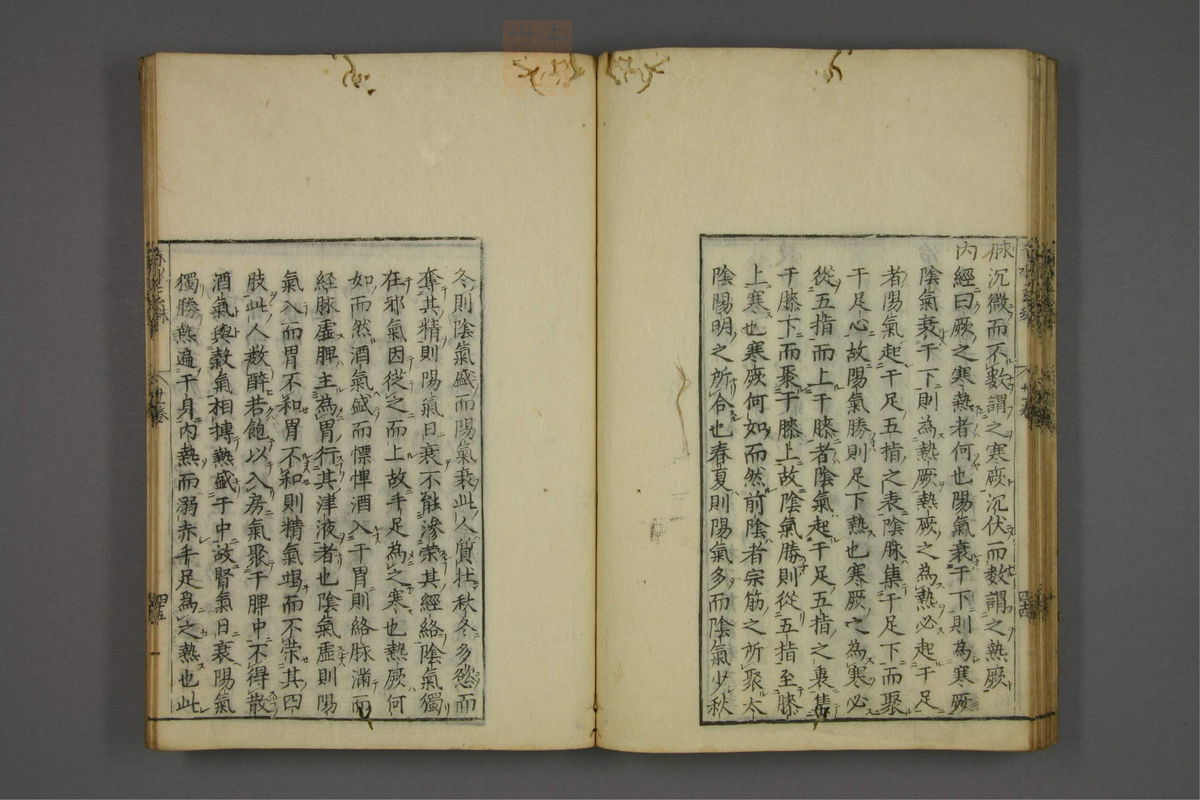 脉沉微而不數謂之寒厥沉伏而數謂之熱厥
內經曰厥之寒熱者何也陽氣衰于下則為寒厥
陰氣衰于下則為熱厥熱厥之為熱必起于足
者陽氣起于足五指之表陰脉集于足下而聚
于足心故陽氣勝則足下熱也寒厥之為寒必
從五指而上于膝者陰氣起于足五指之裏集
于膝下而聚于膝上故陰氣勝則從五指至膝
上寒也寒厥何如而然前陰者宗筋之所聚太
陰陽明之所合也春夏則陽氣多而陰氣少秋
冬則陰氣盛而陽氣衰此人質壯秋冬多慾而
奪其精則陽氣日衰不能滲榮其經絡陰氣獨
在邪氣因從之而上故手足為之寒也熱厥何
如而然酒氣盛而慓悍酒入于胃則絡脉滿而
經脉虛脾主為胃行其津液者也陰氣虛則陽
氣入而胃不和胃不和則精氣竭而不榮其四
肢此人數醉若飽以入房氣聚于脾中不得散
酒氣與穀氣相摶熱盛于中故腎氣日衰陽氣
獨勝熱遍于身內熱而溺赤手足為之熱也此